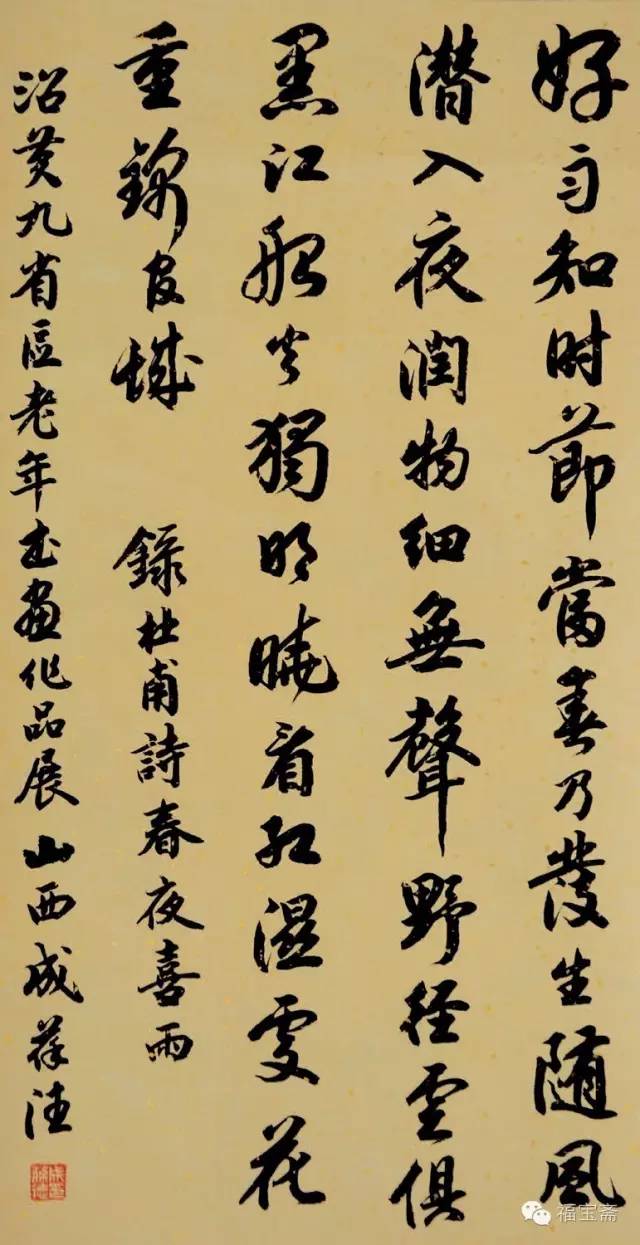 好雨知时節當春乃發生随風
潜入夜潤物细無聲野径雲俱
黑江船火獨明曉看红濕處花
重錦官城 錄杜甫詩春夜喜雨
沿黄九省區老年书畫作品展山西成葆德
福宝斋